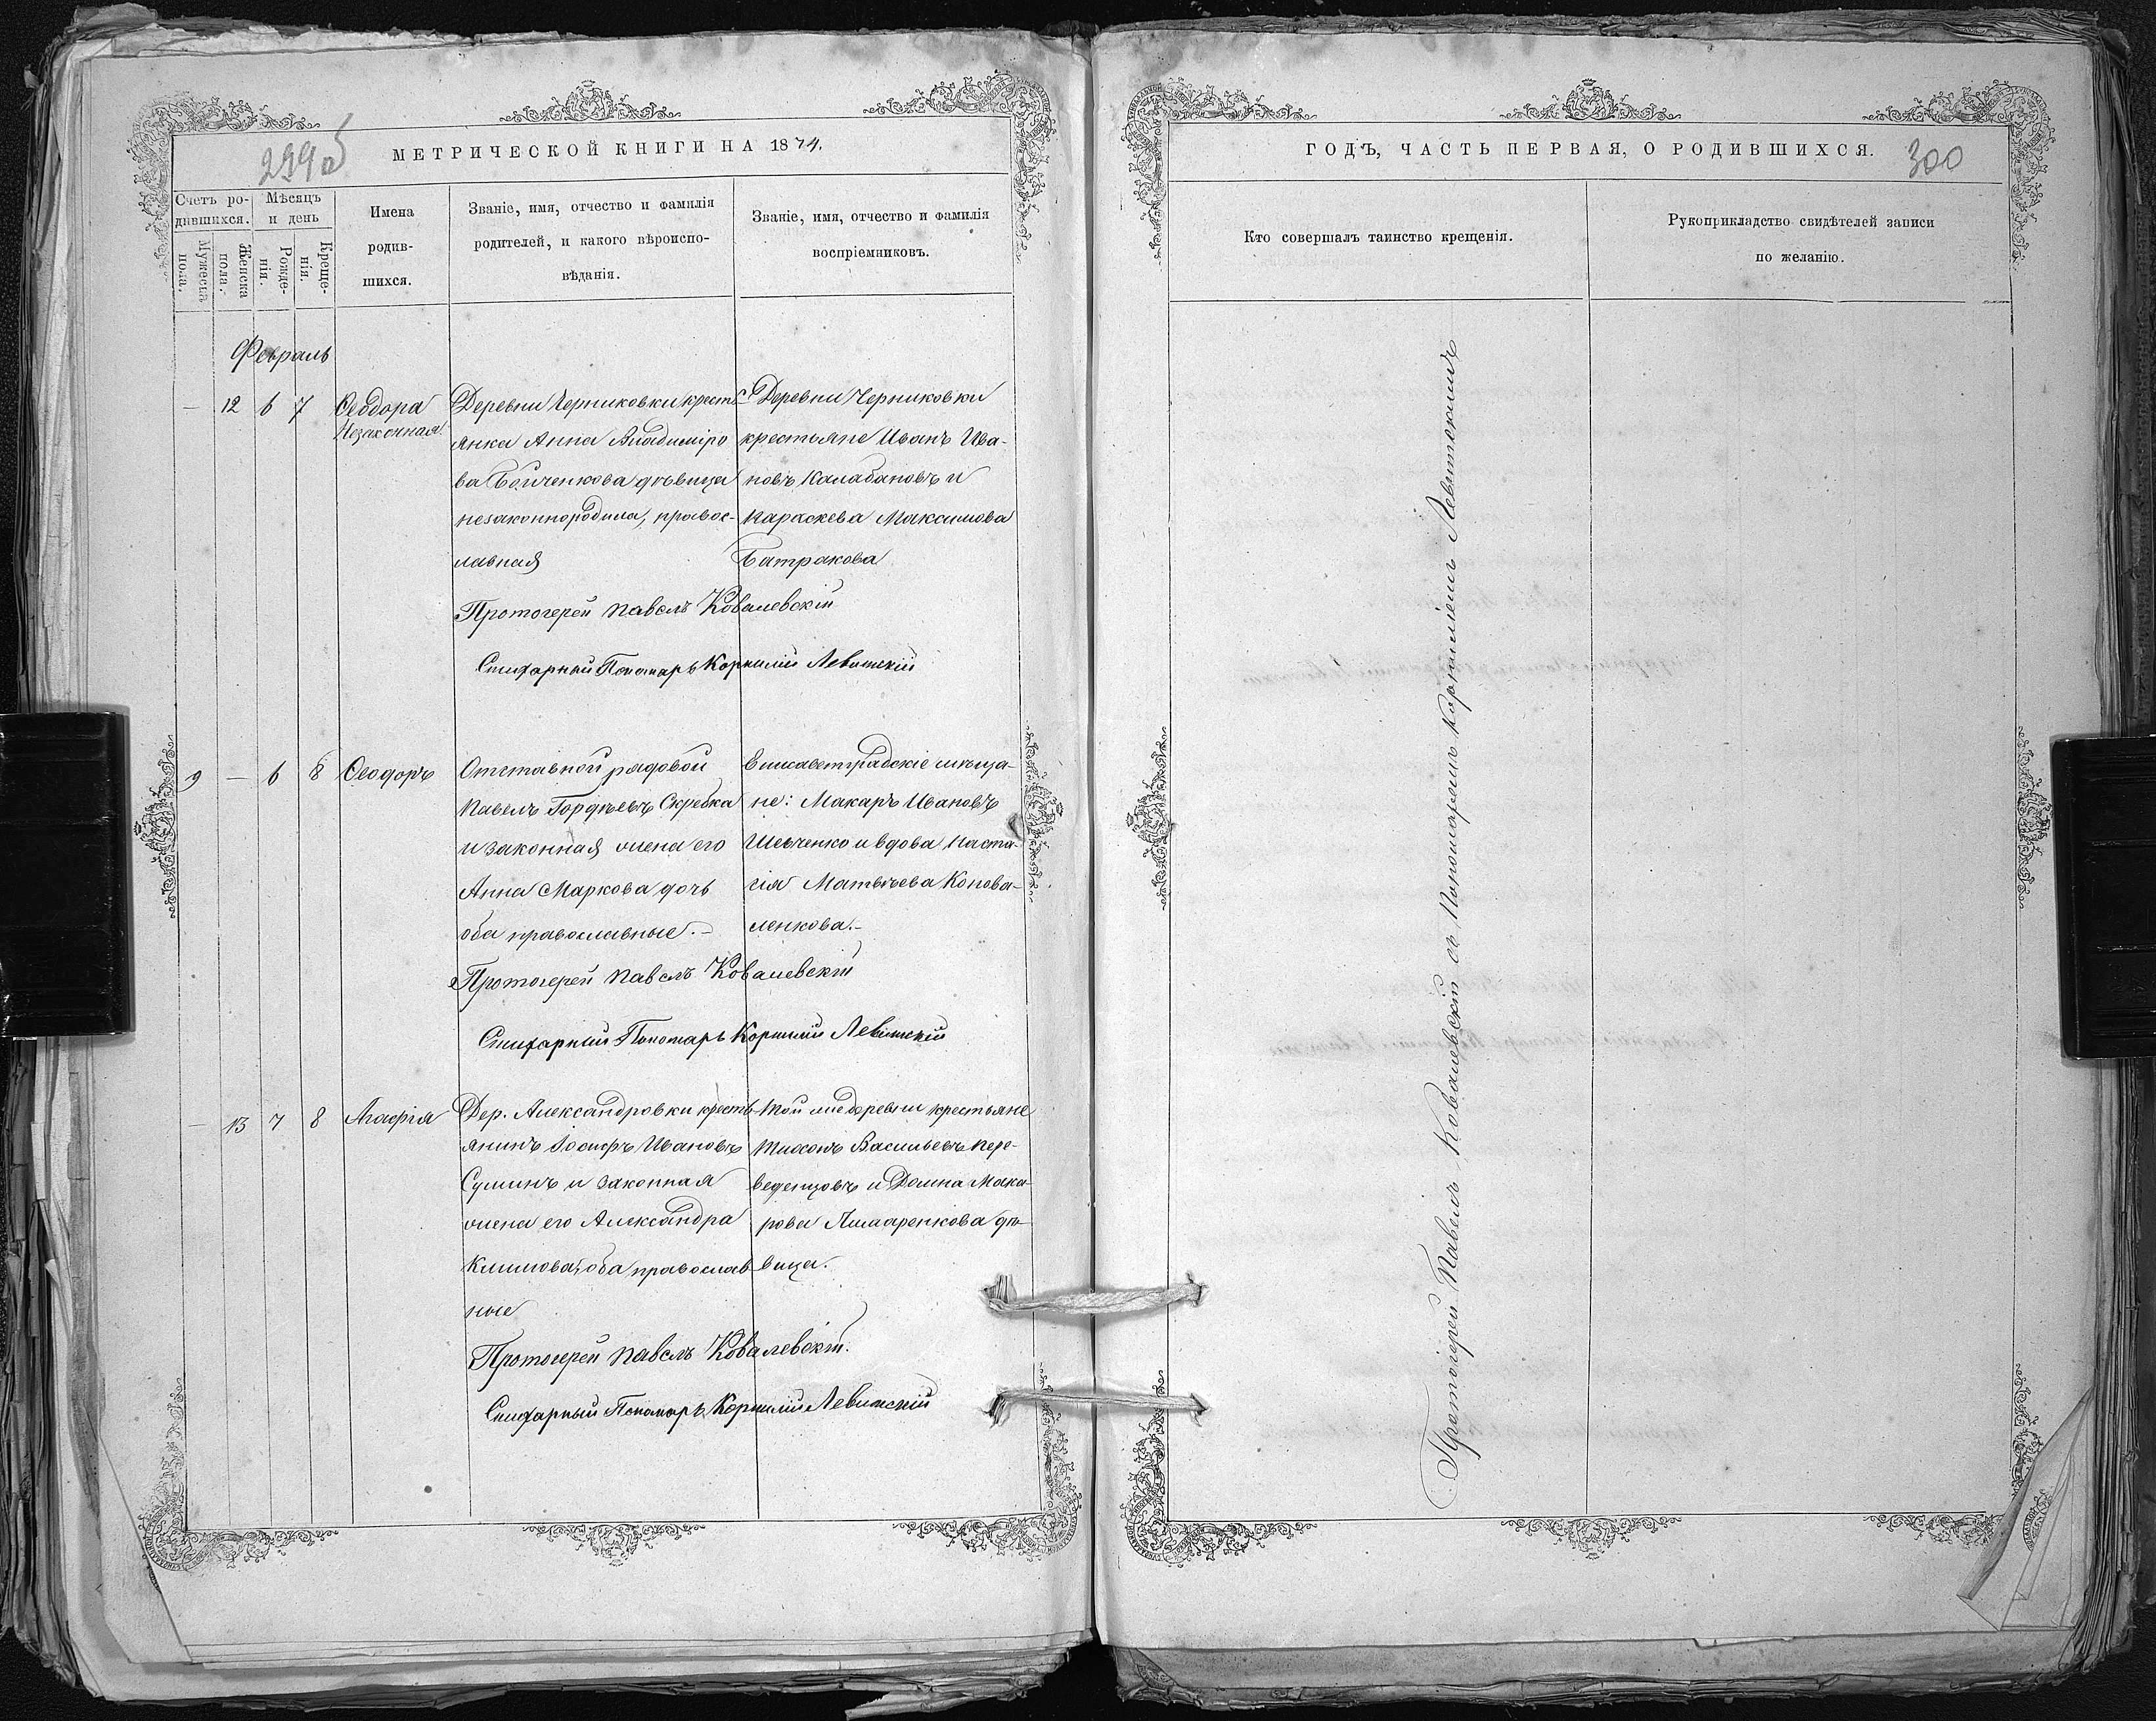 299об
МЕТРИЧЕСКОЙ КНИГИ НА 1874.
Счетъ ро-
дившихся.
Мужеска
пола.
Женска
пола.
Мѣсяцъ
и день
Рожде-
нія.
Креще-
нія.
Имена
родив-
шихся.
Званіе, имя, отчество и фамилія
родителей, и какого вѣроиспо-
вѣданія.
Званіе, имя, отчество и фамилія
воспріемниковъ.
Февраль
— 12 6 7
Ѳеодора
Незаконная
Деревни Черниковки кресть-
янка Анна Владиміро
ва Бойченкова дѣвица
незаконнородила, правос-
лавная
Деревни Черниковки
крестьяне Иванъ Ива-
новъ Калабановъ и
Параскева Максимова
Батракова
Протоіерей Павелъ Ковалевскій
Стихарный Пономарь Корнилій Левитскій
9 — 6 8
Ѳеодоръ
Отставной рядовой
Павелъ Гордѣевъ Скребка
и законная жена его
Анна Маркова дочь
оба православные.—
Елисаветградскіе мѣща-
не: Макаръ Ивановъ
Шевченко и вдова Наста-
сія Матвѣева Конова-
ленкова.—
Протоіерей Павелъ Ковалевскій
Стихарный Пономарь Корнилій Левитскій
— 13 7 8
Агафія
Дер. Александровки кресть-
янинъ Іосифъ Ивановъ
Суминъ и законная
жена его Александра
Климова, оба православ
ные
Той же деревни крестьяне
Тихонъ Васильевъ Пере-
веденцовъ и Домна Мака-
рова дѣ-
вица.
Протоіерей Павелъ Ковалевскій.
Стихарный Пономарь Корнилій Левитскій
ГОДЪ, ЧАСТЬ ПЕРВАЯ, О РОДИВШИХСЯ.
300
Кто совершалъ таинство крещенія.
Рукоприкладство свидѣтелей записи
по желанію.
Протоіерей Павелъ Ковалевскій съ Пономаремъ Корниліемъ Левитскимъ